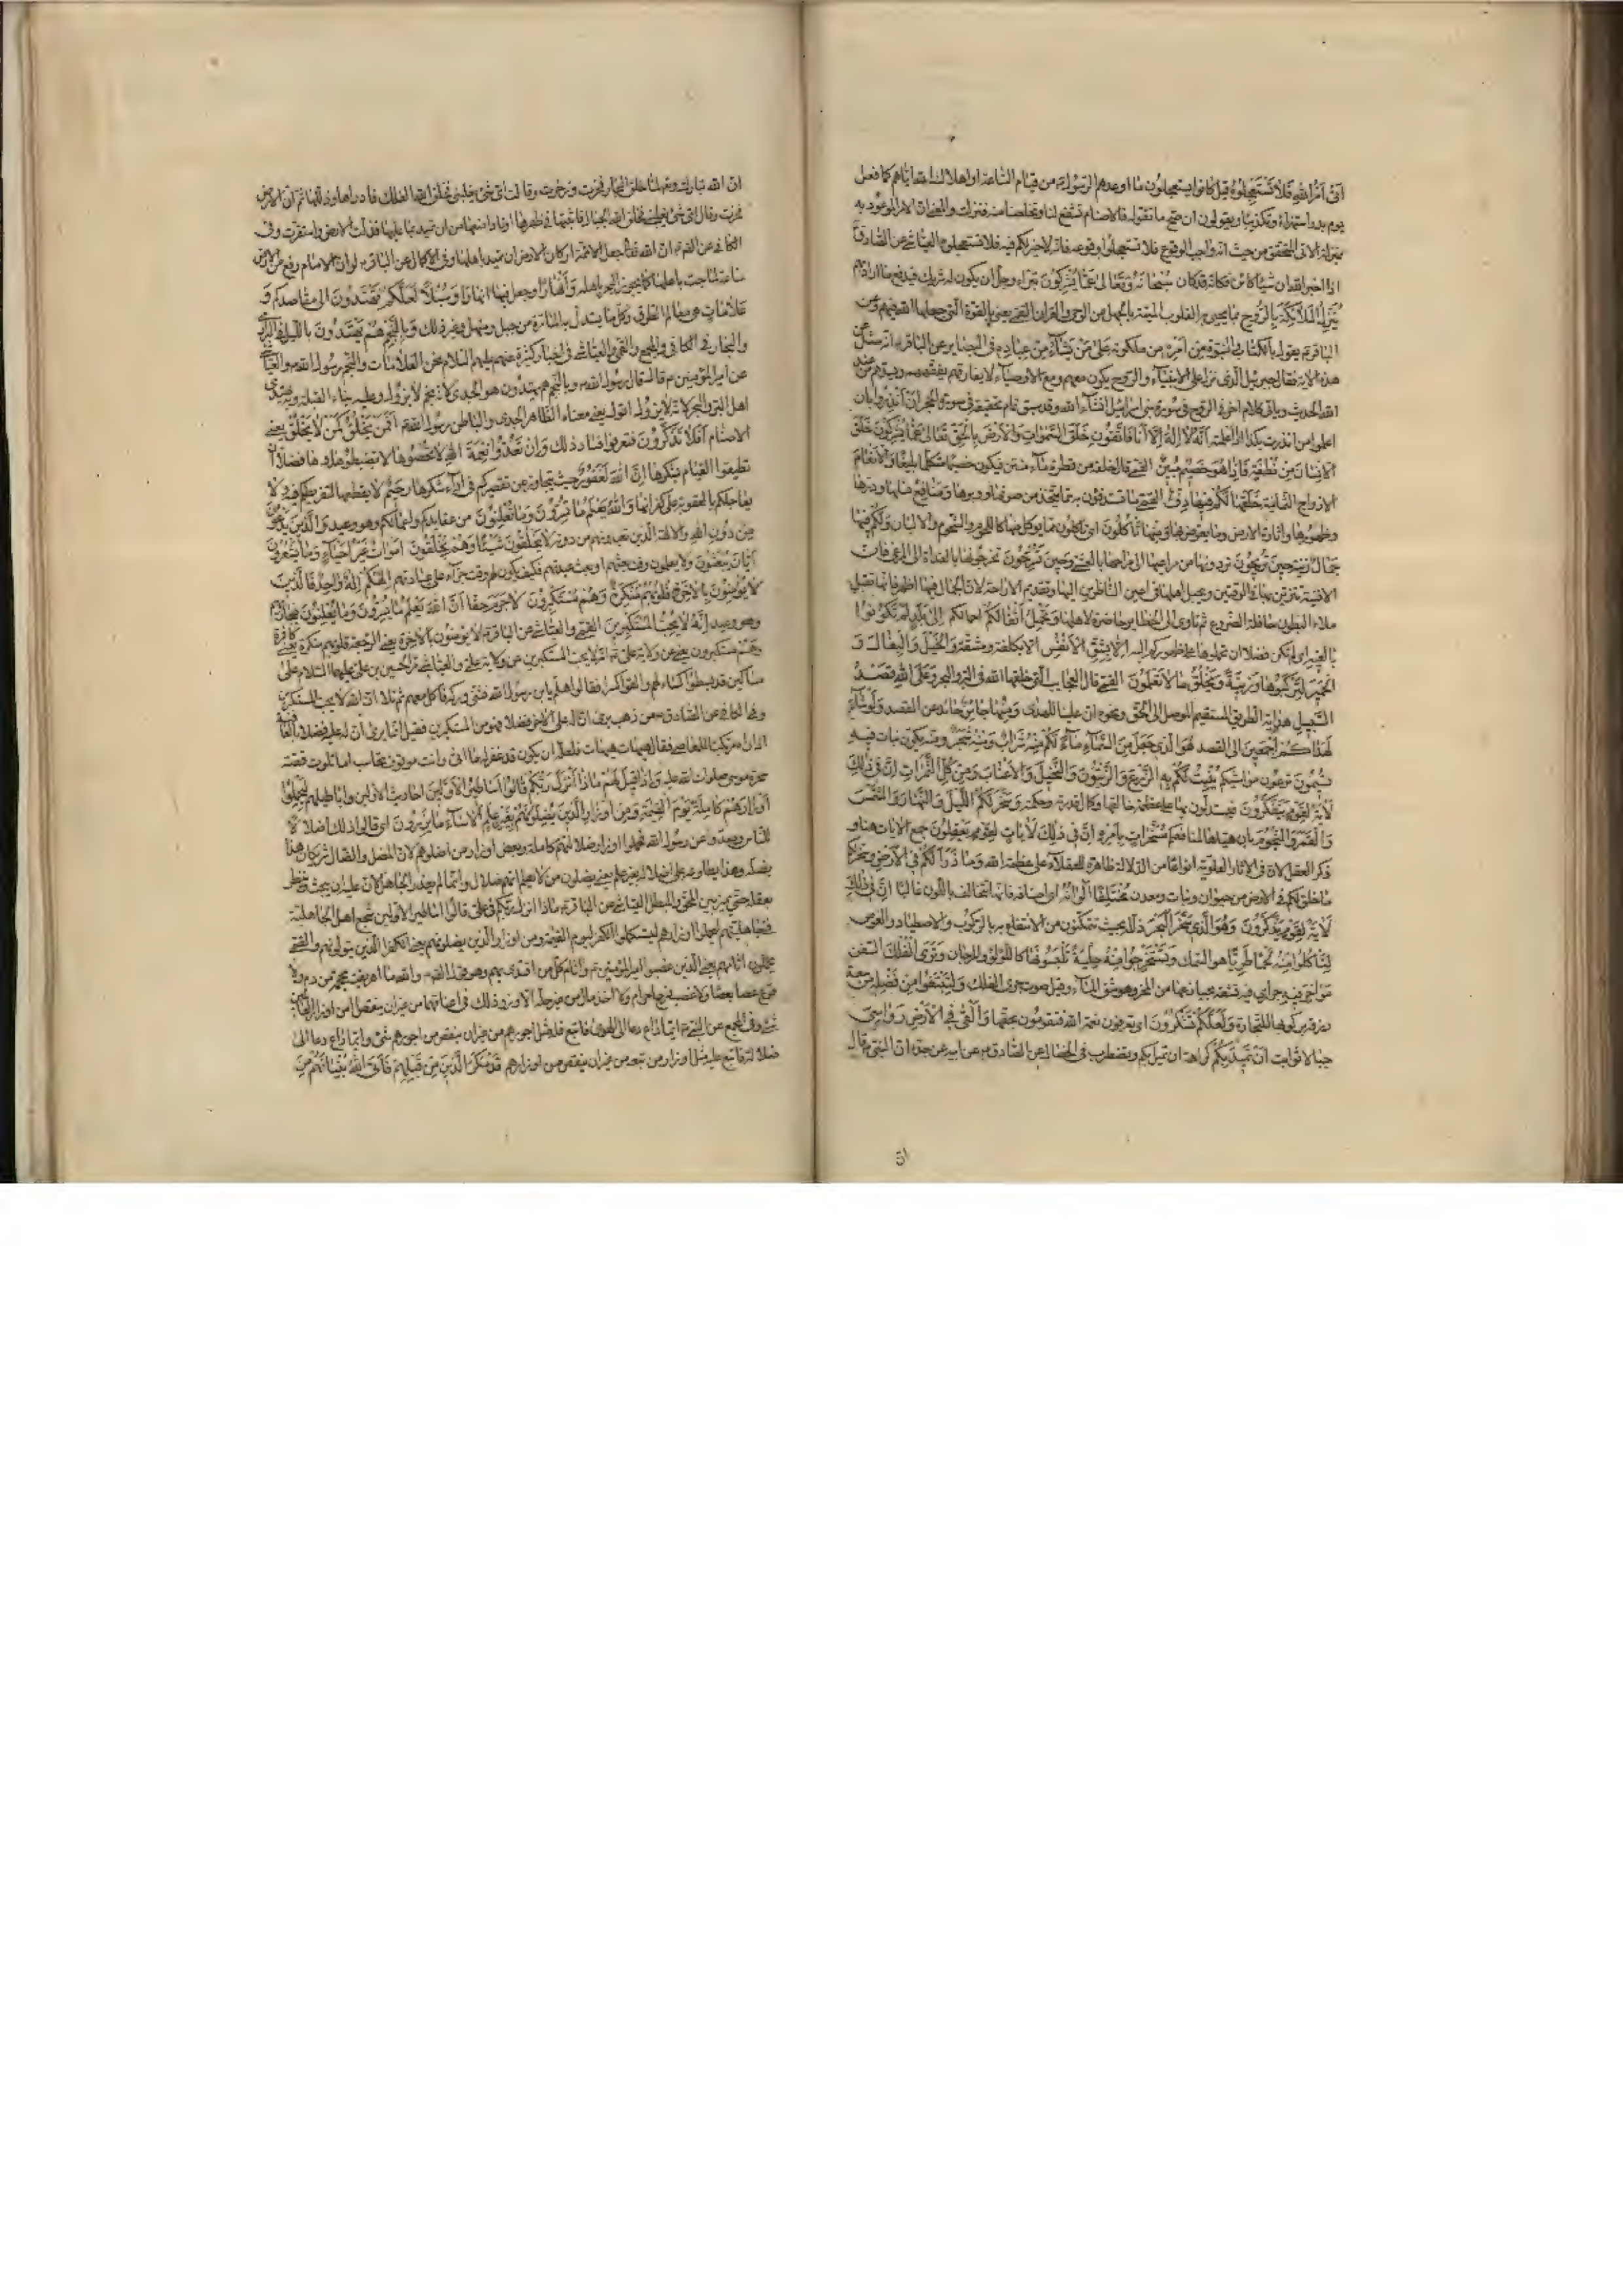 اتى امر الله فلا تستعجلوه قيل كانوا يستعجلون ما اوعدهم الرسول من قيام الساعة او اهلاك الله اياهم كما فعل
يوم بدر استهزاء وتكذيبا ويقولون ان صح ما تقوله فالاصنام تشفع لنا وتخلصنا منه فنزلت والمعنى ان الامر الموعود به
بمنزلة الاتى المتحقق من حيث انه واجب الوقوع فلا تستعجلوا وقوعه فانه لا خير لكم فيه فلا تستعجلوه العياشى عن الصادق
اذا اخبر الله ان شيئا كائن فكانه قد كان سبحانه وتعالى عما يشركون تبراء وجل ان يكون له شريك فيدفع ما اراد بهم
ينزل الملائكة بالروح بما يحيى به القلوب الميتة بالجهل من الوحى والقران القمى يعنى بالقوة التى جعلها الله فيهم وعن
الباقر يقول بالكتاب والنبوة من امره من ملكوته على من يشاء من عباده فى البصاير عن الباقر انه سئل عن
هذه الاية فقال جبرئيل الذى نزل على الانبياء والروح يكون معهم ومع الاوصياء لا يفارقهم يفقههم ويسددهم من عند
الله الحديث وياتى كلام اخر فى الروح فى سورة بنى اسرائيل انشاء الله وقد سبق تمام تحقيقه فى سورة الحجر ان انذروا بان
اعلموا من انذرت بكذا اذا علمته انه لا اله الا انا فاتقون خلق السموات والارض بالحق تعالى عما يشركون خلق
الانسان من نطفة فاذا هو خصيم مبين القمى قال خلقه من قطرة ماء منتن فيكون خصيما متكلما بليغا والانعام
الازواج الثمانية خلقها لكم فيها دفء القمى ما تستدفؤن به مما يتخذ من صوفها ووبرها ومنافع نسلها ودرها
وظهورها واثارة الارض وما يعوض بها ومنها تاكلون اى تاكلون مما يؤكل منها كاللحوم والشحوم والالبان ولكم فيها
جمال زينة حين تريحون تردونها من مراعيها الى مراحها بالعشى وحين تسرحون تخرجونها بالغداة الى المرعى فان
الافنية تتزين بها فى الوقتين ويجل اهلها فى اعين الناظرين اليها وتقديم الاراحة لان الجمال فيها اظهر فانها تقبل
ملاء البطون حافلة الضروع ثم تاوى الى الحظاير حاضرة لاهلها وتحمل اثقالكم احمالكم الى بلد لم تكونوا
بالغيه اى لم تكن فضلا ان تحملوها على ظهوركم اليه الا بشق الانفس الا بكلفة ومشقة والخيل والبغال و
الحمير لتركبوها وزينة ويخلق ما لا تعلمون القمى قال العجايب التى خلقها الله فى البر والبحر وعلى الله قصد
السبيل هداية الطريق المستقيم الموصل الى الحق ونحوه ان علينا للهدى ومنها جائر حائد عن القصد ولو شاء
لهداكم اجمعين الى القصد هو الذى انزل من السماء ماء لكم منه شراب ومنه شجر ومنه يكون نبات فيه
تسيمون ترعون مواشيكم ينبت لكم به الزرع والزيتون والنخيل والاعناب ومن كل الثمرات ان فى ذلك
لاية لقوم يتفكرون فيستدلون بها على عظمة خالقها وكمال قدرته وحكمته وسخر لكم الليل والنهار والشمس
والقمر والنجوم بان هيئاها لمنافعكم مسخرات بامره ان فى ذلك لايات لقوم يعقلون جمع الايات هنا و
ذكر العقل لان فى الاثار العلوية انواعا من الدلالة ظاهرة للعقلاء على عظمة الله وما ذرا لكم فى الارض وسخر لكم
ما خلق لكم فى الارض من حيوان ونبات ومعدن مختلفا الوانه اى اصنافه فانها تتخالف باللون غالبا ان فى ذلك
لاية لقوم يذكرون وهو الذى سخر البحر ذلله بحيث تتمكنون من الانتفاع به بالركوب والاصطياد والغوص
لتاكلوا منه لحما طريا هو السمك وتستخرجوا منه حلية تلبسونها كاللؤلؤ والمرجان وترى الفلك السفن
مواخر فيه جوارى فيه تشقه بحيازيمها من المخر وهو شق الماء وقيل صوت جرى الفلك ولتبتغوا من فضله من سعة
رزقه بركوبها للتجارة ولعلكم تشكرون اى تعرفون نعمة الله فتقومون بحقها والقى فى الارض رواسى
جبالا ثوابت ان تميد بكم كراهة ان تميل بكم وتضطرب فى الخصال عن الصادق عن ابيه عن جده ان النبى قال
ان
ان الله تبارك وتعالى لما خلق البحار فخرت وزخرت وقالت اى شئ يغلبنى فخلق الله الفلك فادارها وذللها ثم ان الارض
فخرت وقالت اى شئ يغلبنى فخلق الله الجبال فاثبتها فى ظهرها اوتادا منعها من ان تميد بما عليها فذلت الارض واستقرت وفى
الكافى عن ان الله جعل الائمة اركان الارض ان تميد باهلها وفى الاكمال عن الباقر لو ان الامام رفع من الارض
ساعة لماجت باهلها كما يموج البحر باهله وانهارا وجعل فيها انهارا وسبلا لعلكم تهتدون الى مقاصدكم و
علامات هى معالم الطرق وكل ما يستدل به المارة من جبل ومنهل وغير ذلك وبالنجم هم يهتدون بالليل فى البرارى
والبحار فى الكافى والمجمع والقمى والعياشى فى اخبار كثيرة عنهم عليهم السلام نحن العلامات والنجم رسول الله والعياشى
عن امير المؤمنين قال قال رسول الله وبالنجم هم يهتدون هو الجدى لانه نجم لا يزول وعليه بناء القبلة وبه يهتدى
اهل البر والبحر لانه لا يزول اقول يعنى معناه الظاهر الجدى والباطن رسول الله افمن يخلق كمن لا يخلق يعنى
الاصنام افلا تذكرون فتعرفوا فساد ذلك وان تعدوا نعمة الله لا تحصوها لا تضبطوا عددها فضلا ان
تطيقوا القيام بشكرها ان الله لغفور حيث يتجاوز عن تقصيركم فى اداء شكرها رحيم لا يقطعها لتفريطكم فيه ولا
يعاجلكم بالعقوبة على كفرانها والله يعلم ما تسرون وما تعلنون من عقايدكم واعمالكم وهو وعيد والذين يدعون
من دون الله والالهة الذين تعبدونهم من دونه لا يخلقون شيئا وهم يخلقون اموات غير احياء وما يشعرون
ايان يبعثون ولا يعلمون وقت بعثهم او بعث عبدتهم فكيف يكون لهم وقت جزاء على عبادتهم الهكم اله واحد فالذين
لا يؤمنون بالاخرة قلوبهم منكرة وهم مستكبرون لا جرم حقا ان الله يعلم ما يسرون وما يعلنون فيجازيهم
وهو وعيد انه لا يحب المستكبرين القمى والعياشى عن الباقر لا يؤمنون بالاخرة يعنى الرجعة قلوبهم منكرة يعنى كافرة
وهم مستكبرون يعنى عن ولاية على انه لا يحب المستكبرين عن ولاية على والعياشى مر الحسين بن على عليهما السلام على
مساكين قد بسطوا كساء لهم والقوا كسرا فقالوا هلم يا بن رسول الله فثنى وركه فاكل معهم ثم تلا ان الله لا يحب المستكبرين
وفى الكافى عن الصادق من ذهب يرى ان له على الاخر فضلا فهو من المستكبرين فقيل انما يرى ان له عليه فضلا بالعافية
اذا راه مرتكبا للمعاصى فقال هيهات هيهات فلعله ان يكون قد غفر له ما اتى وانت موقوف محاسب اما تلوت قصة
سحرة موسى صلوات الله عليه واذا قيل لهم ماذا انزل ربكم قالوا اساطير الاولين احاديث الاولين واباطيلهم ليحملوا
اوزارهم كاملة يوم القيمة ومن اوزار الذين يضلونهم بغير علم الا ساء ما يزرون اى قالوا ذلك اضلالا
للناس وصدا عن رسول الله فحملوا اوزار ضلالتهم كاملة وبعض اوزار من اضلوهم لان المضل والضال شريكان هذا
يضله وهذا يطاوعه على اضلاله بغير علم يعنى يضلون من لا يعلم انهم ضلال وانما لم يعذر الجاهل لان عليه ان يبحث وينظر
بعقله حتى يميز بين المحق والمبطل العياشى عن الباقر ماذا انزل ربكم فى على قالوا اساطير الاولين سجع اهل الجاهلية
فى جاهليتهم ليحملوا اوزارهم ليستكملوا الكفر ليوم القيمة ومن اوزار الذين يضلونهم يعنى الكفر الذين يتولونهم والقمى
يحملون اثامهم يعنى الذين غصبوا امير المؤمنين واثام كل من اقتدى بهم وهو قول الصادق والله ما اهريقت محجمة من دم ولا
قرع عصا بعصا ولا غصب فرج حرام ولا اخذ مال من غير حله الا وزر ذلك فى اعناقهما من غير ان ينقص من اوزار العالمين
شئ وفى المجمع عن النبى ايما داع دعا الى الهدى فاتبع فله مثل اجورهم من غير ان ينقص من اجورهم شئ وايما داع دعا الى
ضلالة فاتبع عليه مثل اوزار من تبعه من غير ان ينقص من اوزارهم قد مكر الذين من قبلهم فاتى الله بنيانهم من